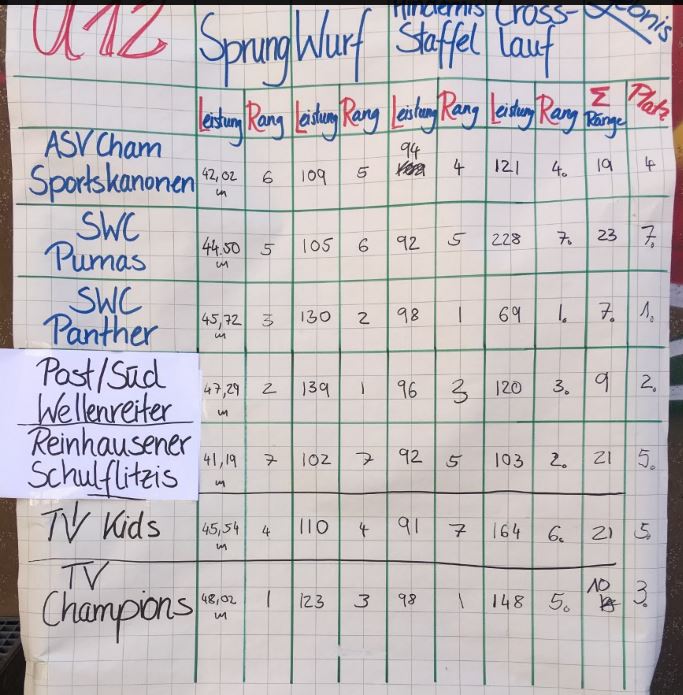 U12 Sprung Wurf Hindernis Staffel Cross-lauf
Leistung Rang Leistung Rang Leistung Rang Leistung Rang Σ Ränge Platz
ASV Cham
Sportskanonen 42,02 m 6 109 5 94 4 121 4. 19 4
SWC
Pumas 44.50 m 5 105 6 92 5 228 7. 23 7.
SWC
Panther 45,72 m 3 130 2 98 1 69 1. 7. 1.
Post/Süd
Wellenreiter 47,29 m 2 139 1 96 3 120 3. 9 2.
Reinhausener
Schulflitzis 41,19 m 7 102 7 92 5 103 2. 21 5.
TV Kids 45,54 m 4 110 4 91 7 164 6. 21 5.
TV
Champions 48,02 m 1 123 3 98 1 148 5. 10 3.